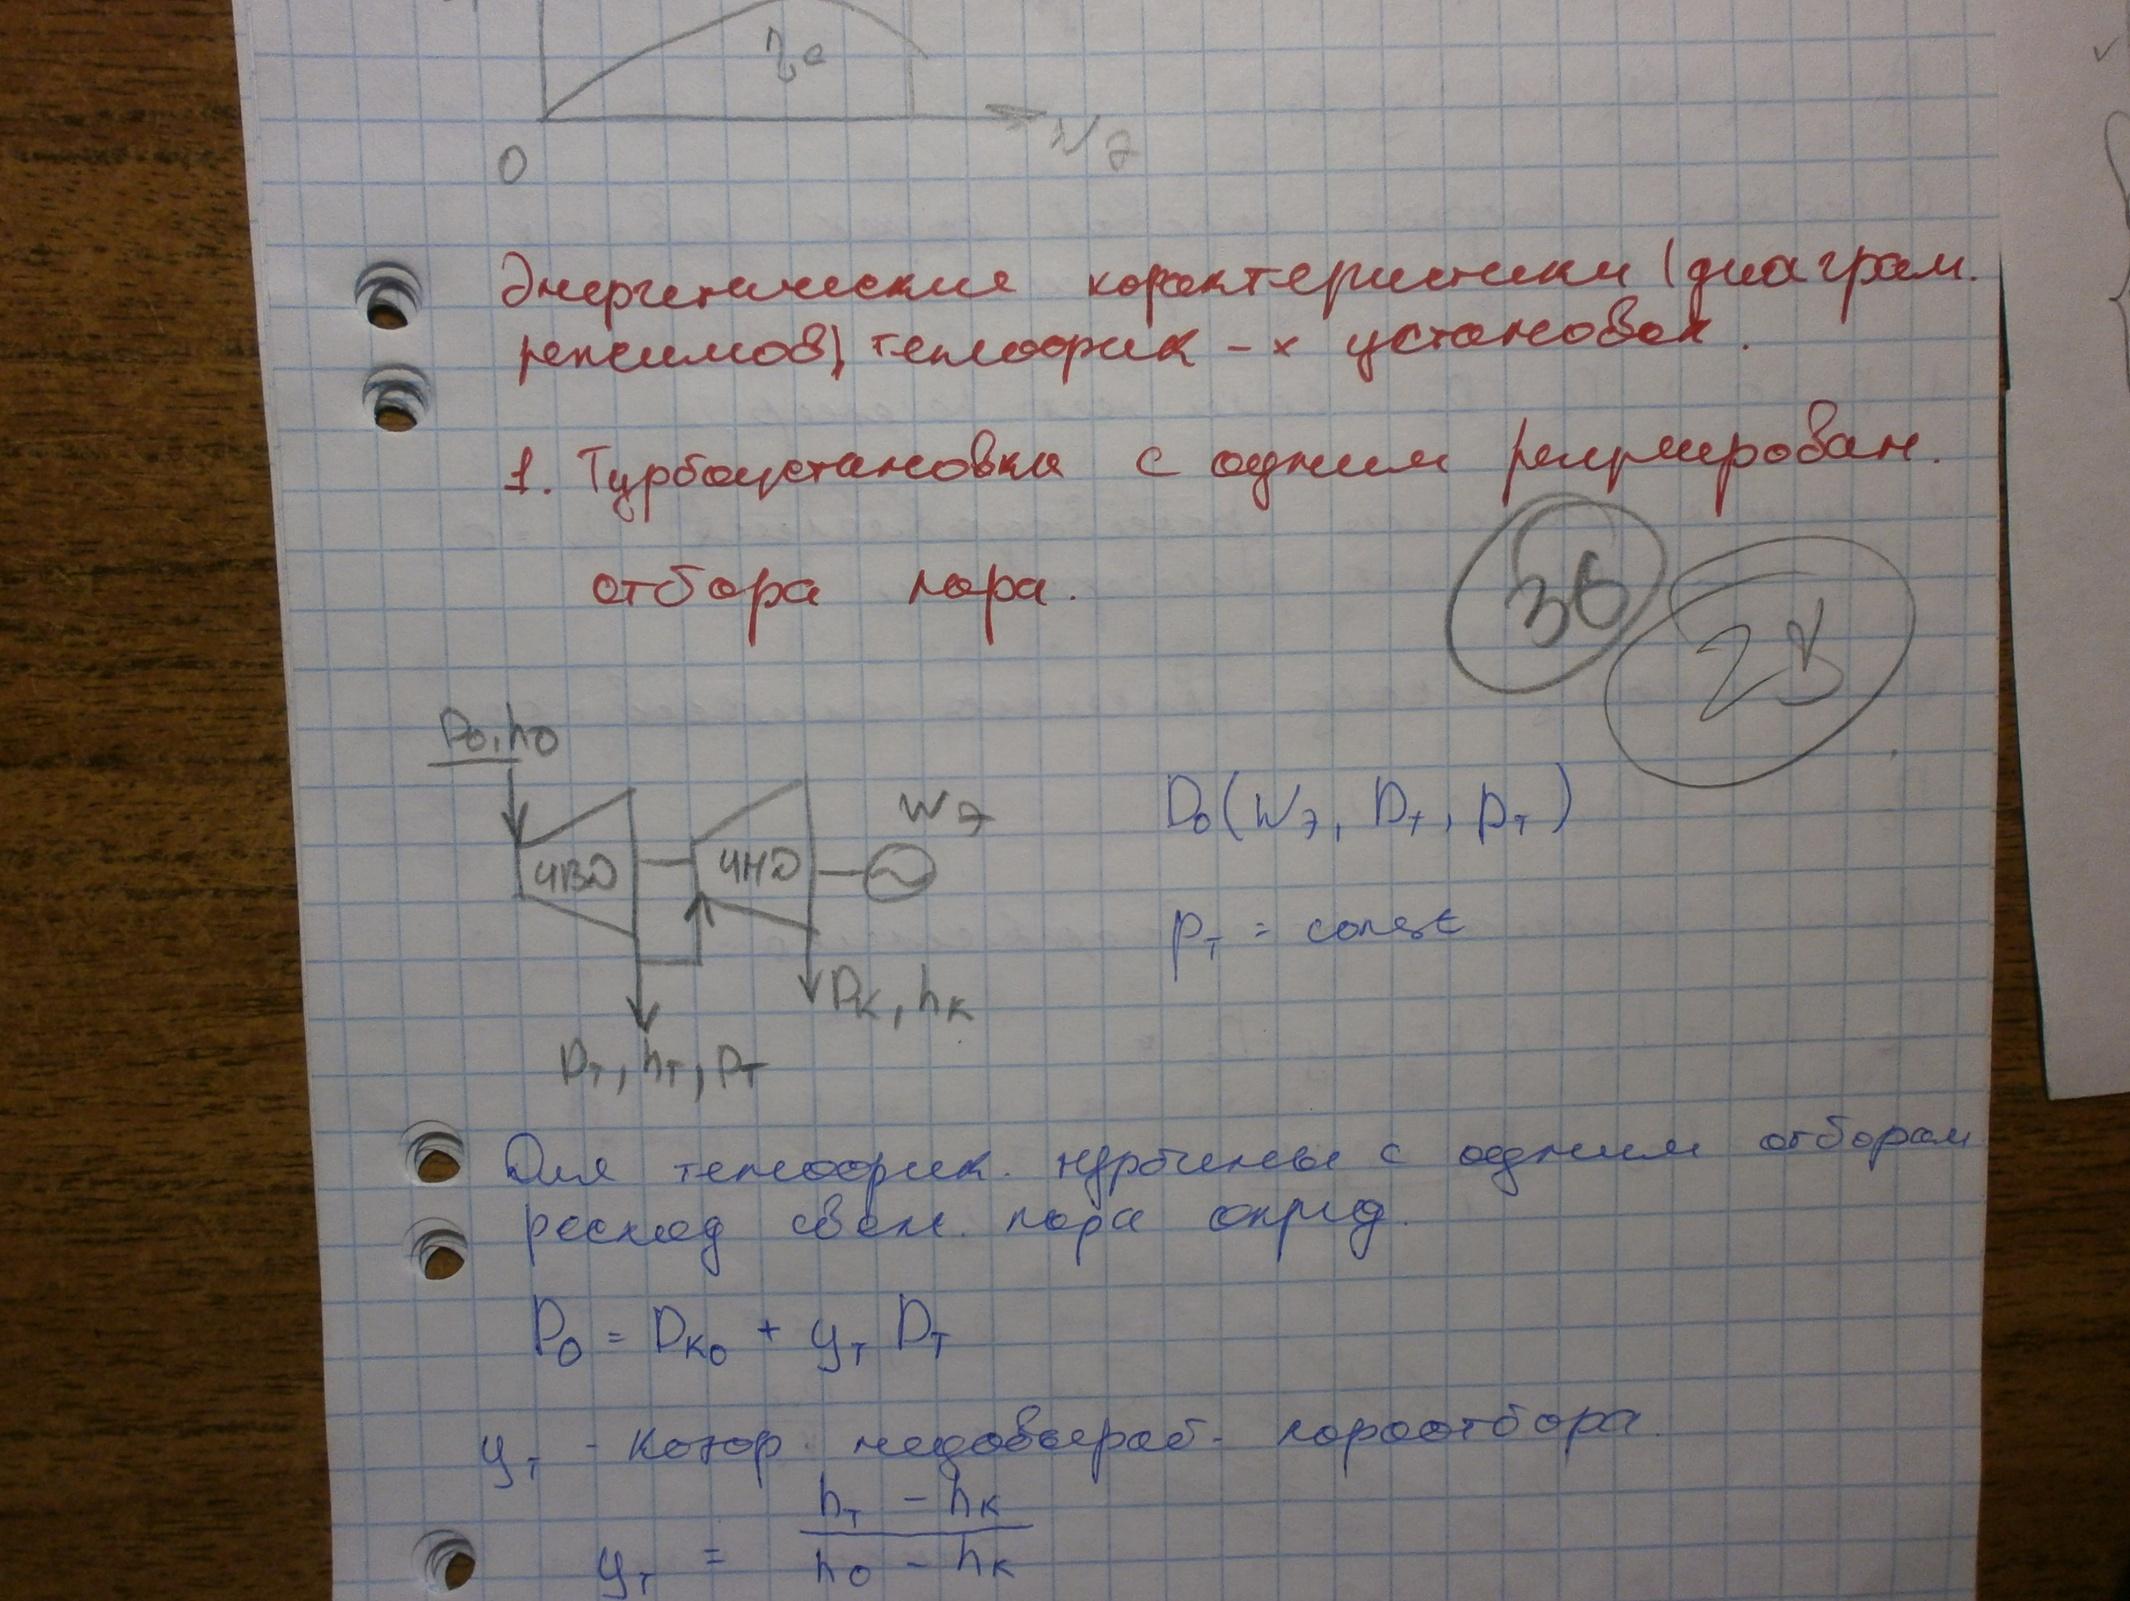 ηе
0
Nэ
Энергетические характеристики (диаграм.
режимов) теплофик-х установок.
1. Турбоустановка с одним регулирован.
36
отбора пара.
2В
D₀, h₀
Nэ
D₀(Nэ, Dт, pт)
ЧВД
ЧНД
pт = const
Dк, hк
Dт, hт, pт
Для теплофик. турбины с одним отбором
расход свеж. пара опред.
D₀ = Dк₀ + yт Dт
yт - коэф. недовыраб. пароотбора.
yт = (hт - hк) / (h₀ - hк)